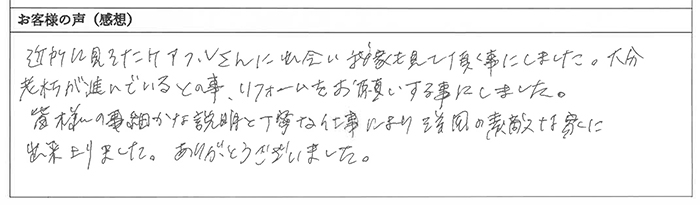 お客様の声（感想）
近所に見えたケアフルさんに出会い我家を見て頂く事にしました。大分
老朽が進んでいるとの事、リフォームをお願いする事にしました。
皆様の細かな説明と丁寧な仕事により の素敵な家に
出来上りました。ありがとうございました。